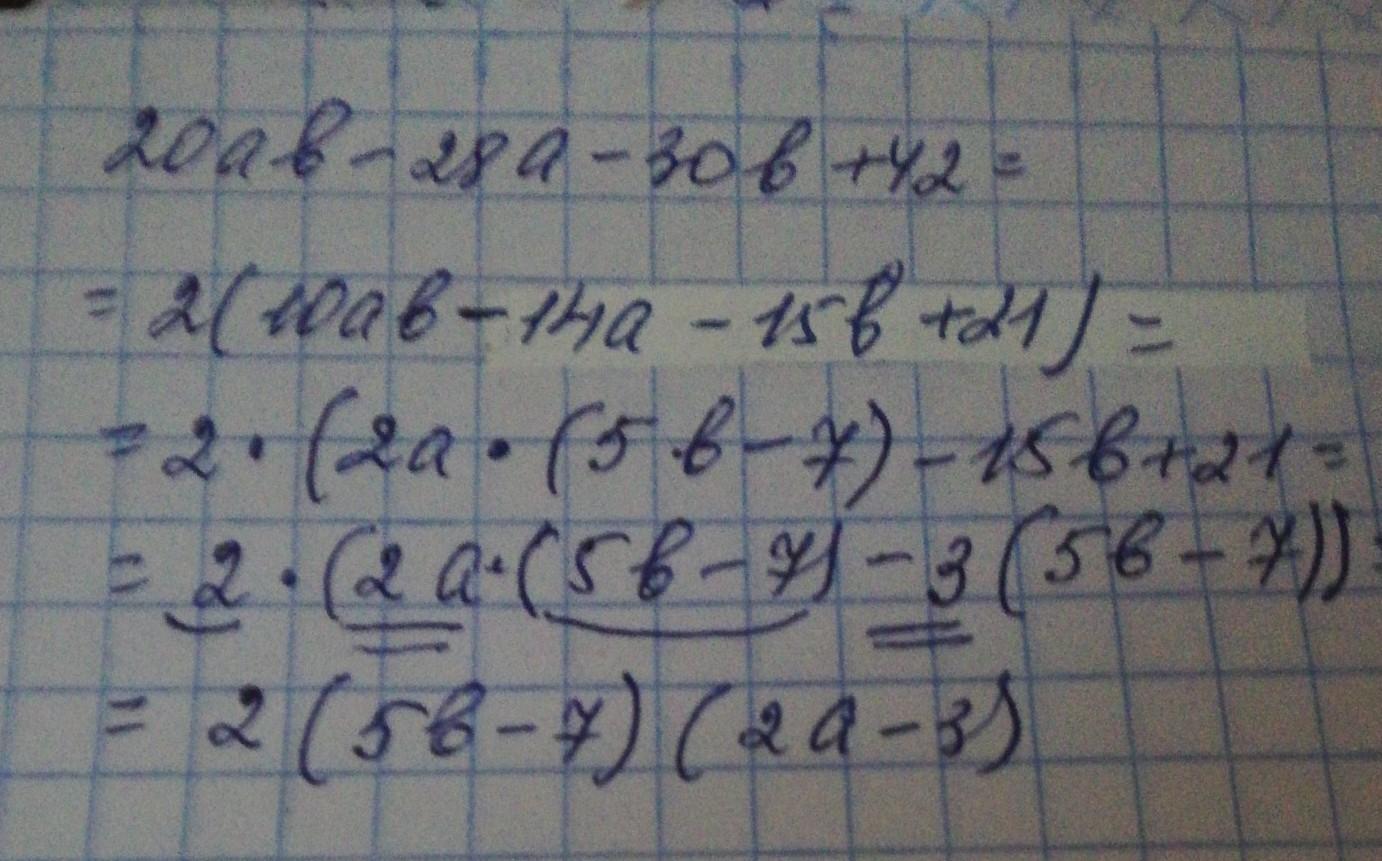 20ab - 28a - 30b + 42 =
= 2(10ab - 14a - 15b + 21) =
= 2 · (2a · (5b - 7) - 15b + 21 =
= 2 · (2a · (5b - 7) - 3(5b - 7)) =
= 2(5b - 7)(2a - 3)